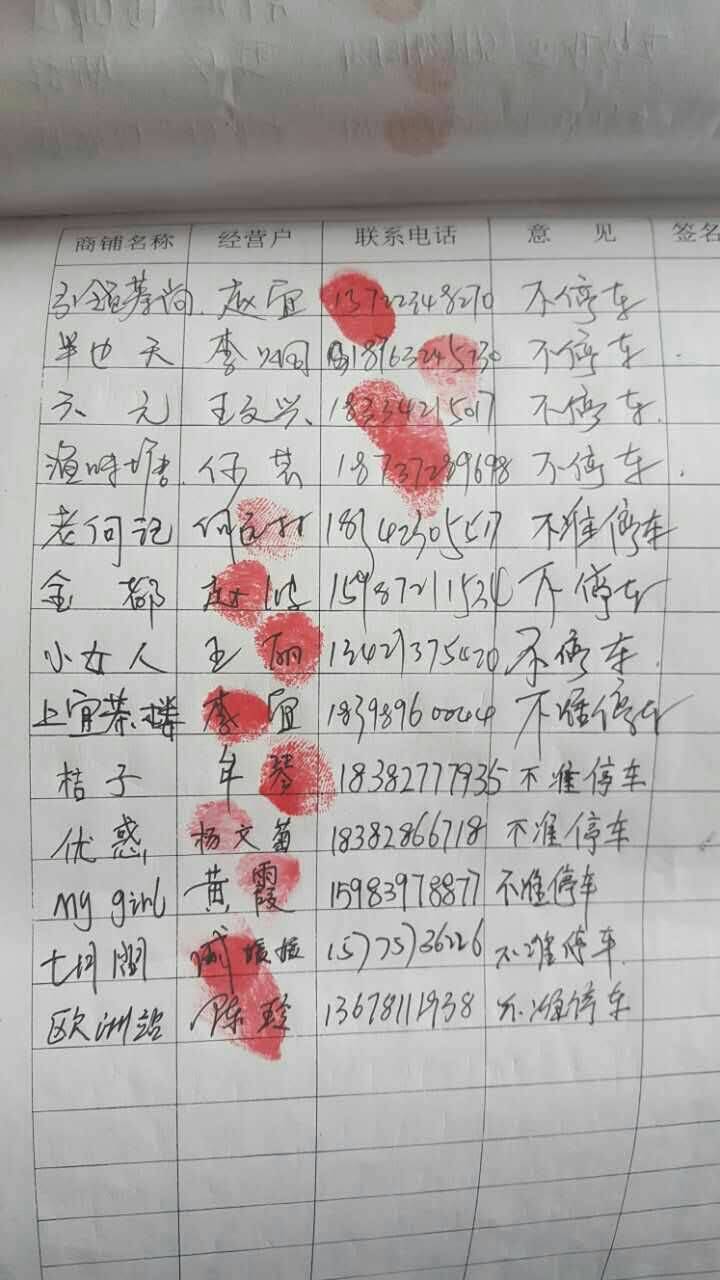 商铺名称 经营户 联系电话 意 见 签名
赵宜 13722348270 不停车
半边天 李 18963245730 不停车
天元 王文兴 18334215017 不停车
何芸 18737289698 不停车
老何记 18342305517 不准停车
金都 赵 15987211534 不停车
小女人 王丽 13421375420 不停车
上宜茶楼 李宜 18398960044 不准停车
桔子 牟琴 18382777935 不准停车
优惑 杨文菊 18382866718 不准停车
my girl 黄霞 15983978877 不准停车
七月 臧媛媛 15775736226 不准停车
欧洲站 陈珍 13678111938 不准停车